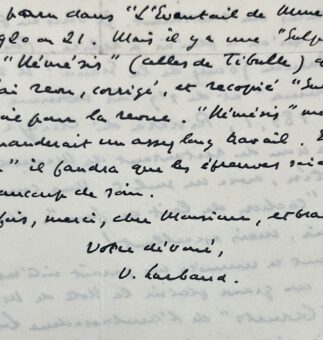 paru dans "L'Eventail de Mme
920 ou 21. Mais il y a une "Sulp
"Némésis" (celles de Tibulle) q
ai revu, corrigé, et recopié "Sul
pour la revue. "Némésis" me
manderait un assez long travail. E
" il faudra que les épreuves soi
aucoup de soin.
fois, merci, cher Monsieur, et cro
Votre dévoué,
V. Larbaud.